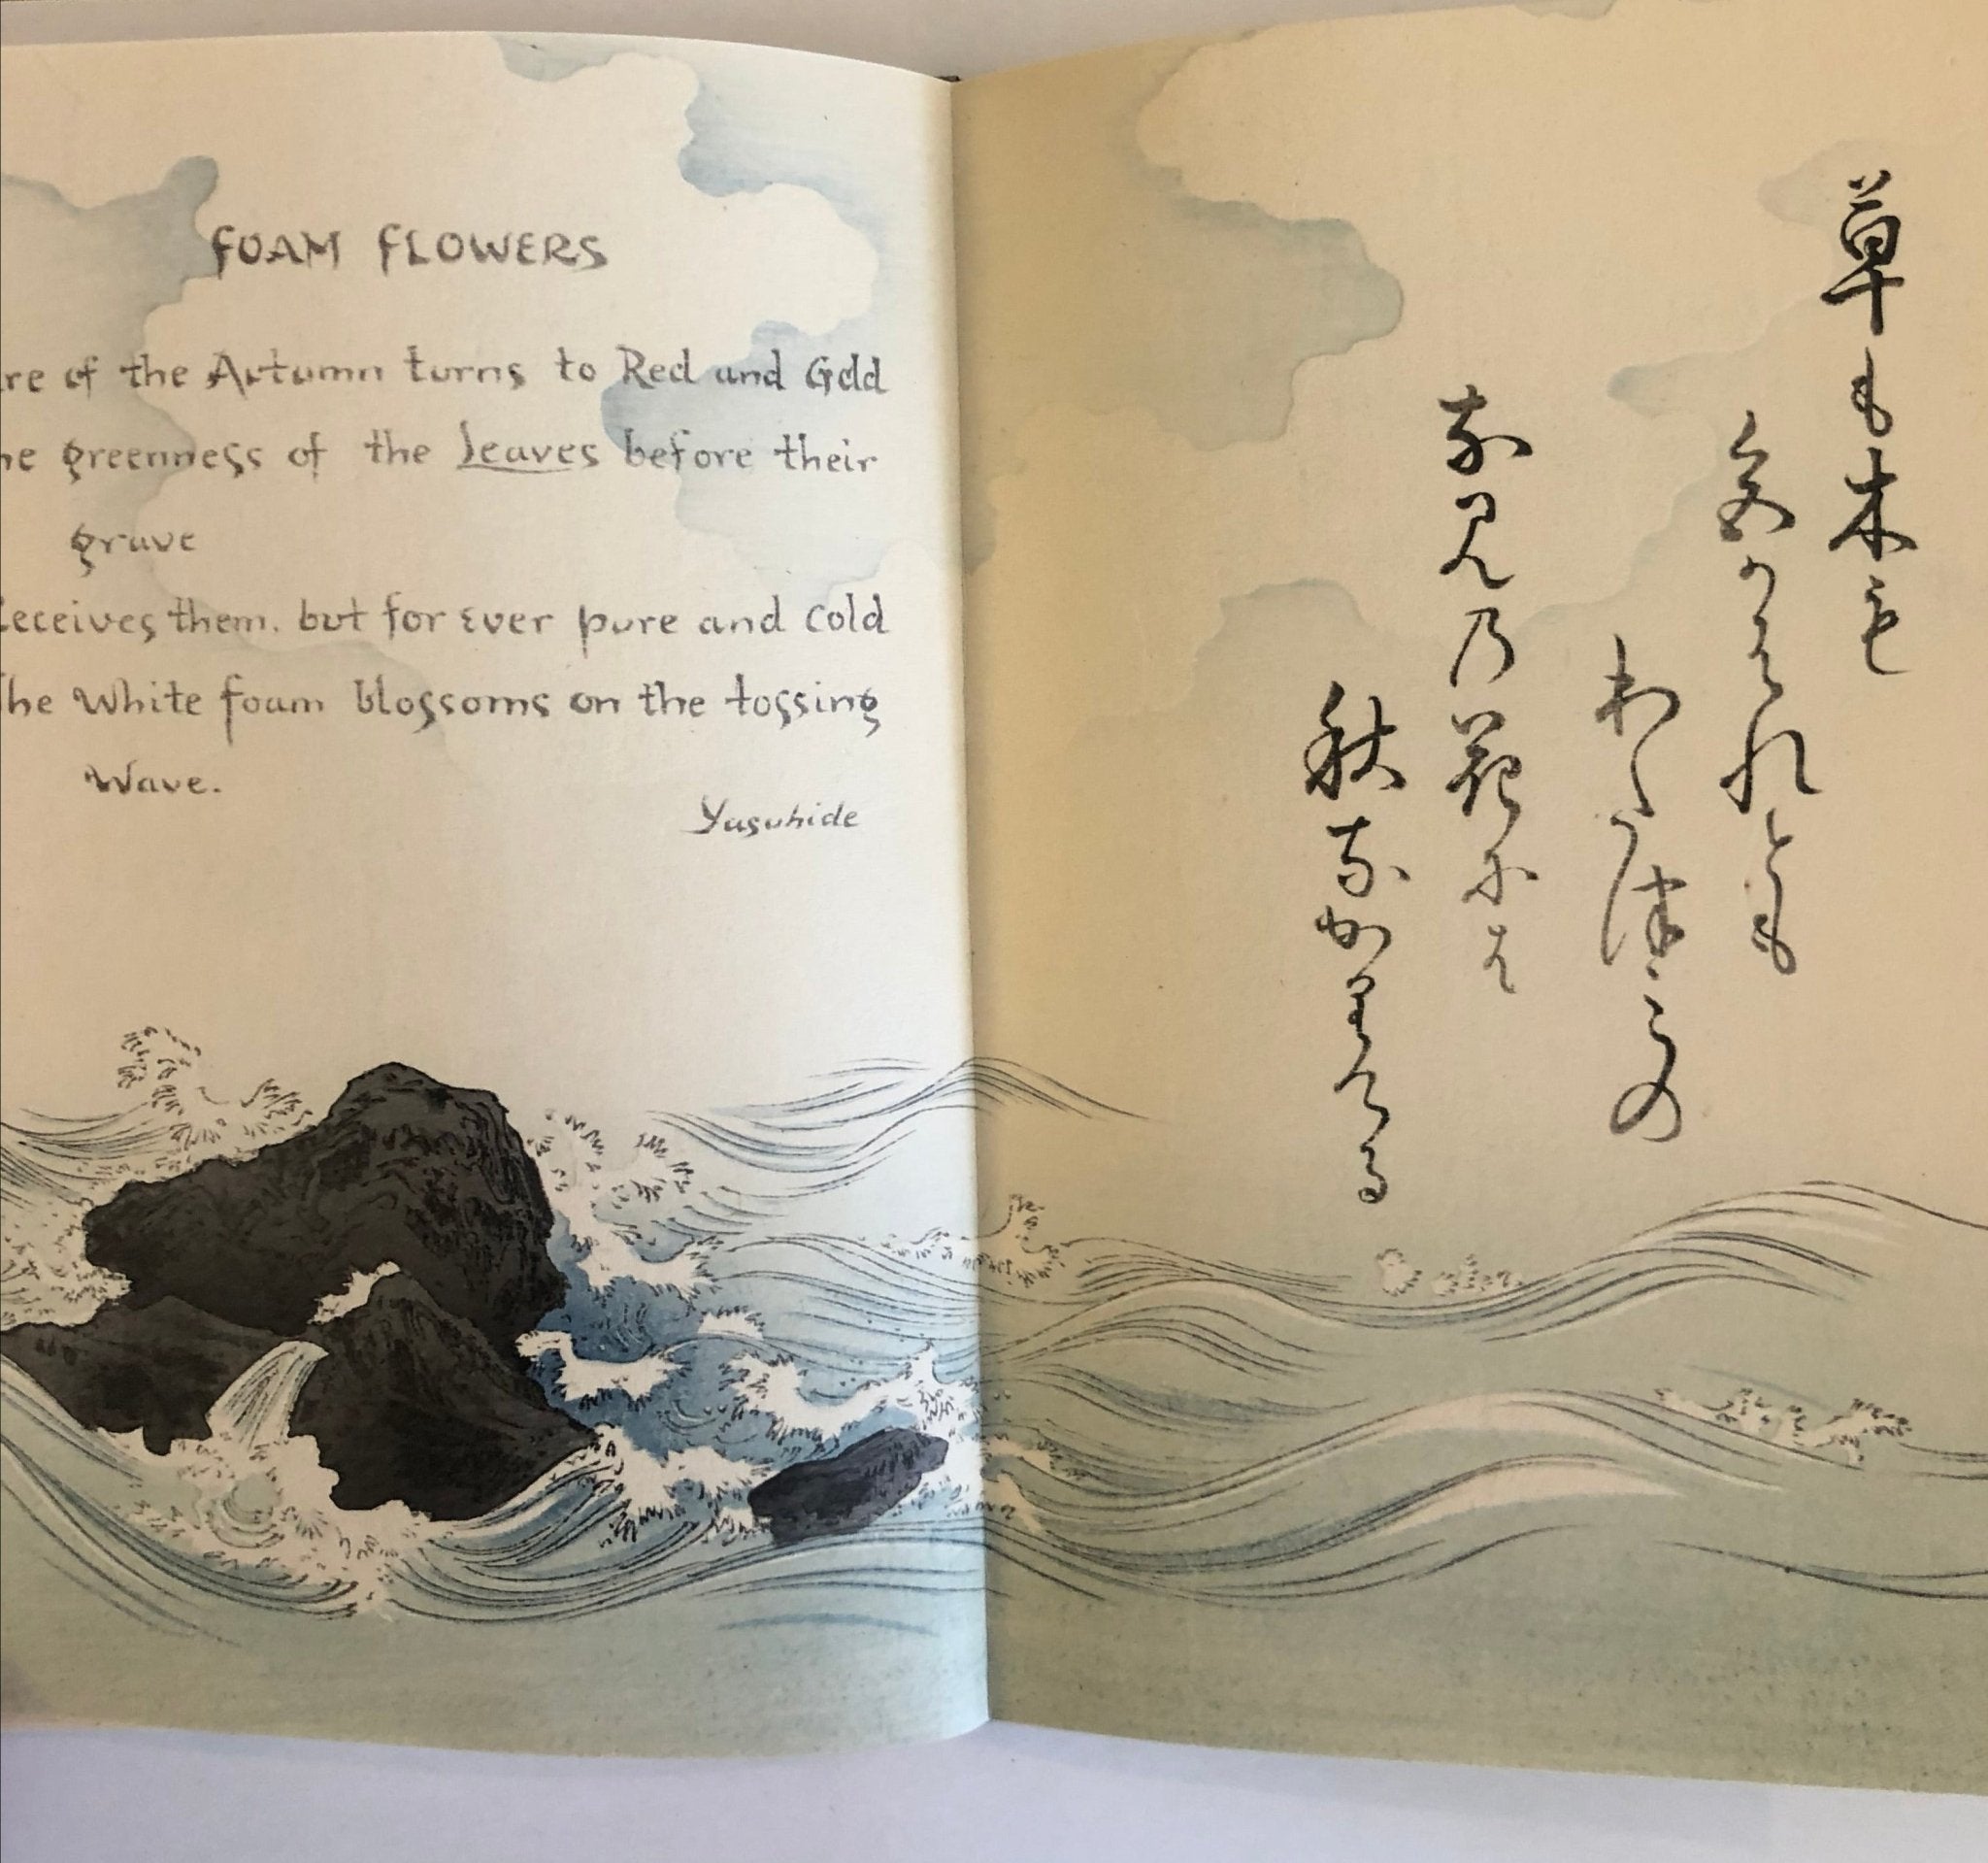 FOAM FLOWERS
re of the Autumn turns to Red and Gold
he greenness of the leaves before their
grave
Receives them. but for ever pure and cold
The White foam blossoms on the tossing
Wave.
Yasuhide
草も木も
色かはれとも
わたつみの
な見乃花にそ
秋なかりける